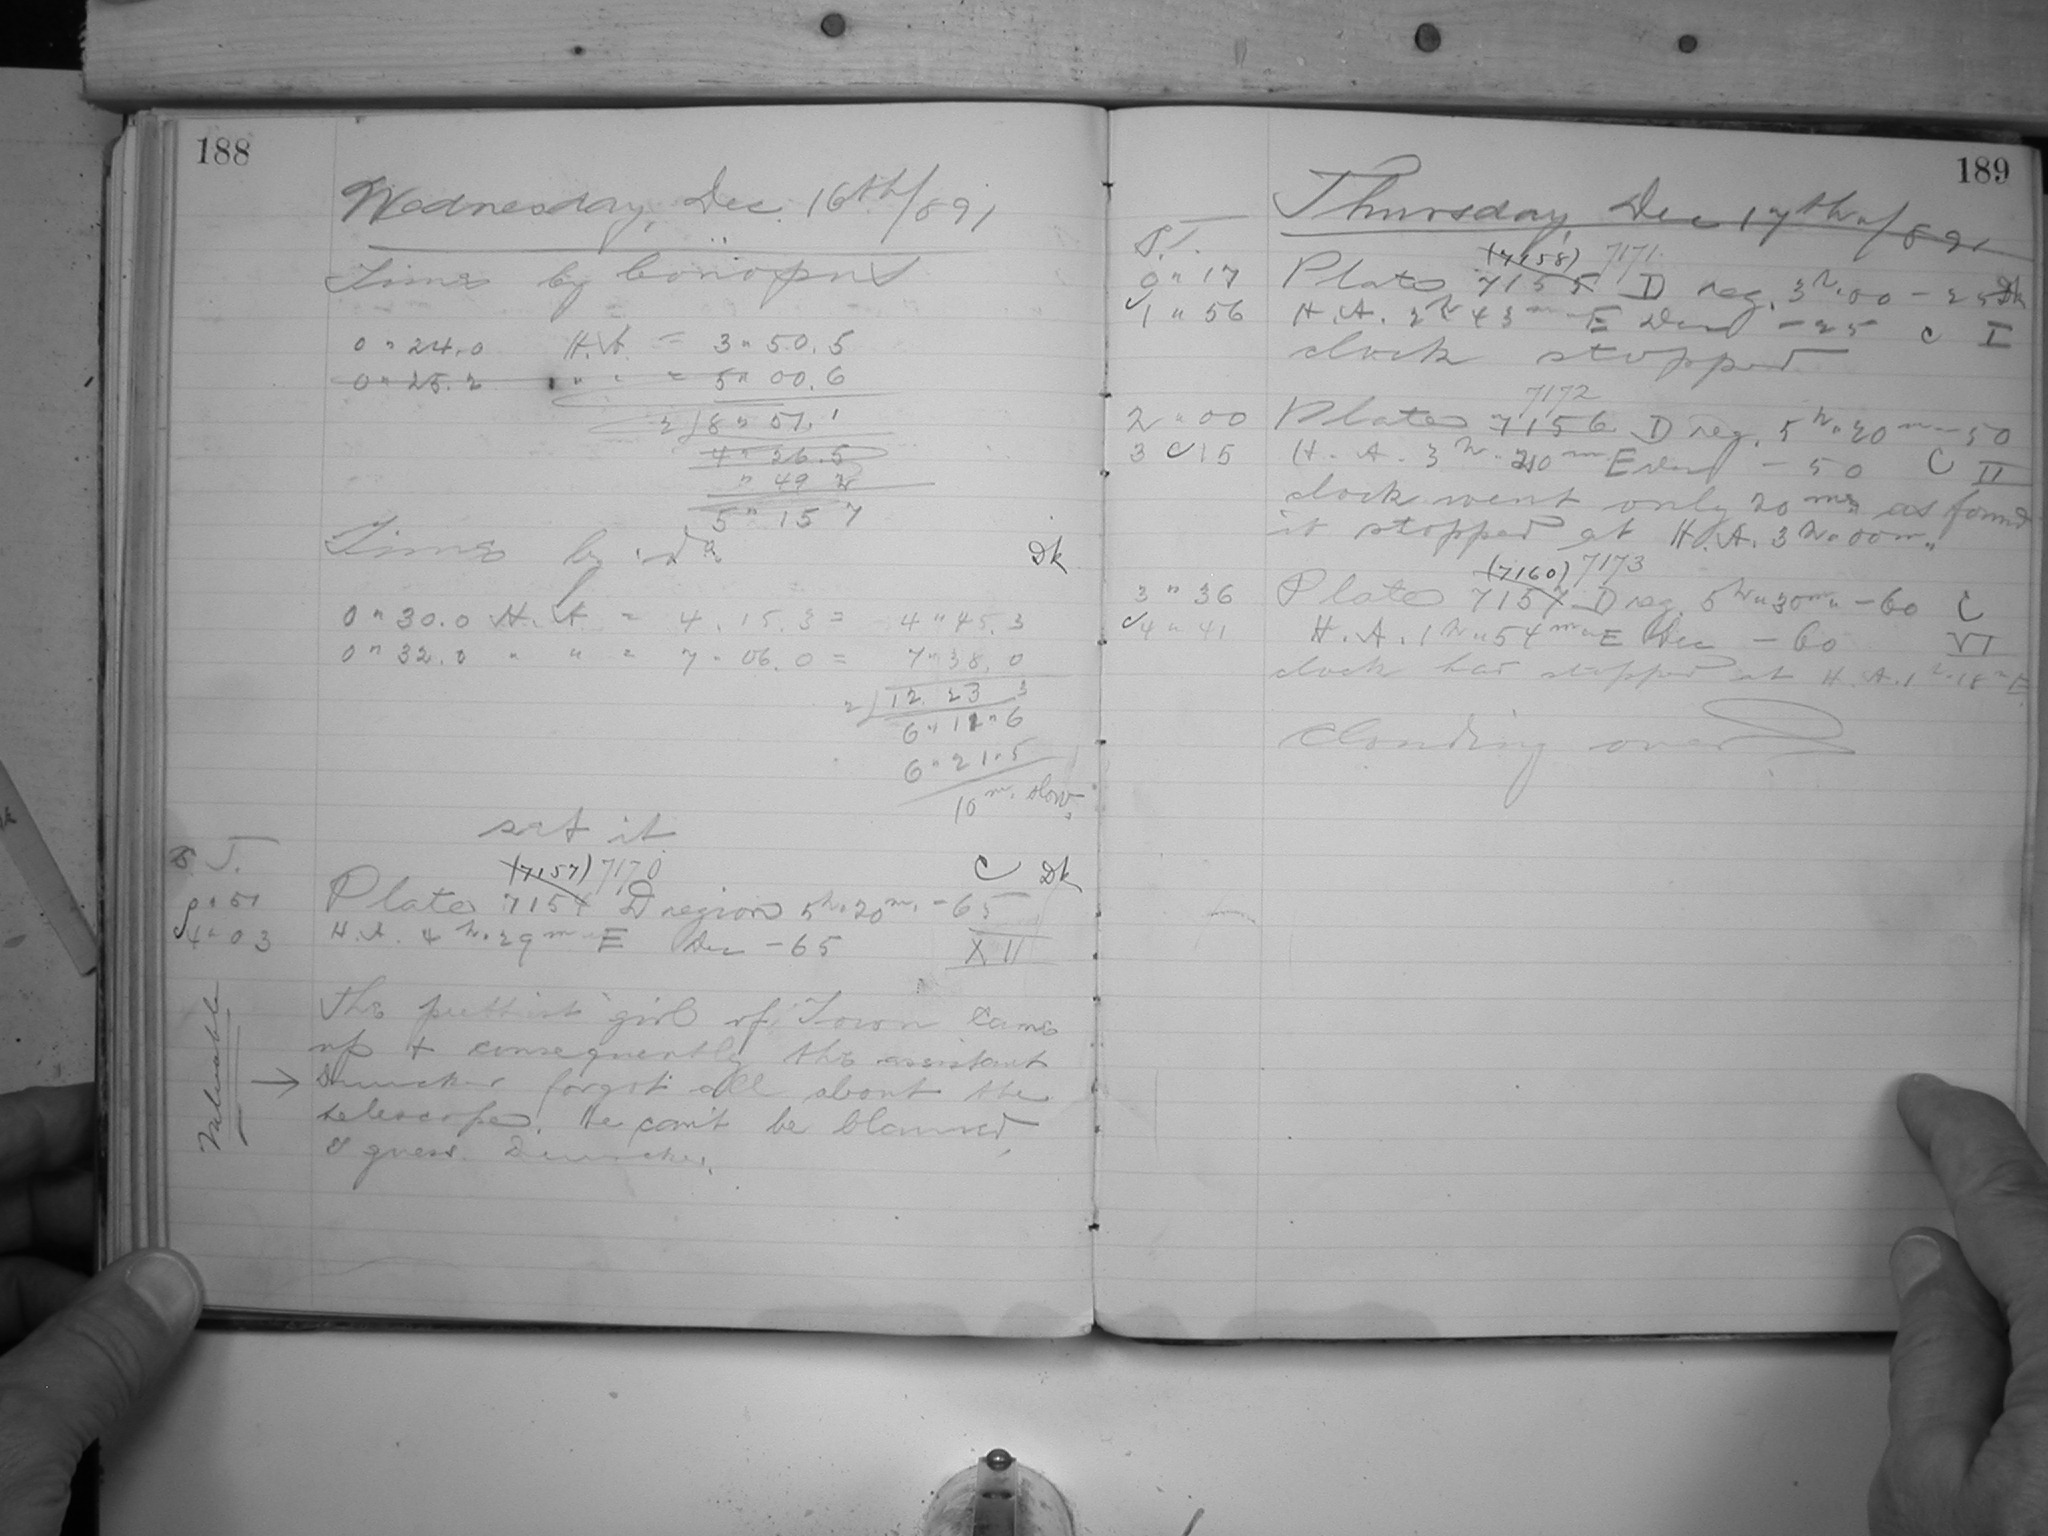 188
Wednesday, Dec. 16th/891
Time by Conopus
0 " 24.0 H.A. = 3 " 50.5
0 " 25.2 " " = 5 " 00.6
2 / 8 " 51.1
4 " 26.5
" 49 2
5 " 15 7
Time by Do Dk
0 " 30.0 H.A. = 4.15.3 = 4 " 45.3
0 " 32.0 " " = 7 " 06.0 = 7 " 38.0
2 / 12 23 3
6 " 11 " 6
6 " 21.5
10 m. slow.
set it
S.T. (7157) 7170 C Dk
0 " 51 Plate 7154 D region 5h " 20m. -65
4 " 03 H.A. 4h " 29m " E Dec -65 XII
Valuable → The prettiest girl of Town came
up + consequently the assistant
Duncker forgot all about the
telescope. He can't be blamed,
I guess. Duncker.
189
Thursday, Dec 17th/891
S.T. (7158) 7171
0 " 17 Plate 7155 D reg. 3h " 00 - 25 Dk
1 " 56 H.A. 2h 43m E Dec -25 C I
clock stopped
7172
2 " 00 Plate 7156 D reg. 5h " 20m - 50
3 " 15 H.A. 3h " 20m E Dec -50 C II
clock went only 20 m as found
it stopped at H.A. 3h " 00m "
(7160) 7173
3 " 36 Plate 7157 D reg. 5h " 30m " -60 C
4 " 41 H.A. 1h " 54m " E Dec -60 VI
clock has stopped at H.A. 1h " 18m E
clouding over